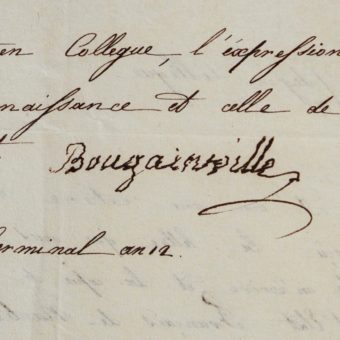 en Collegue, l'éxpression
naissance et celle de
Bougainville
erminal an 12.